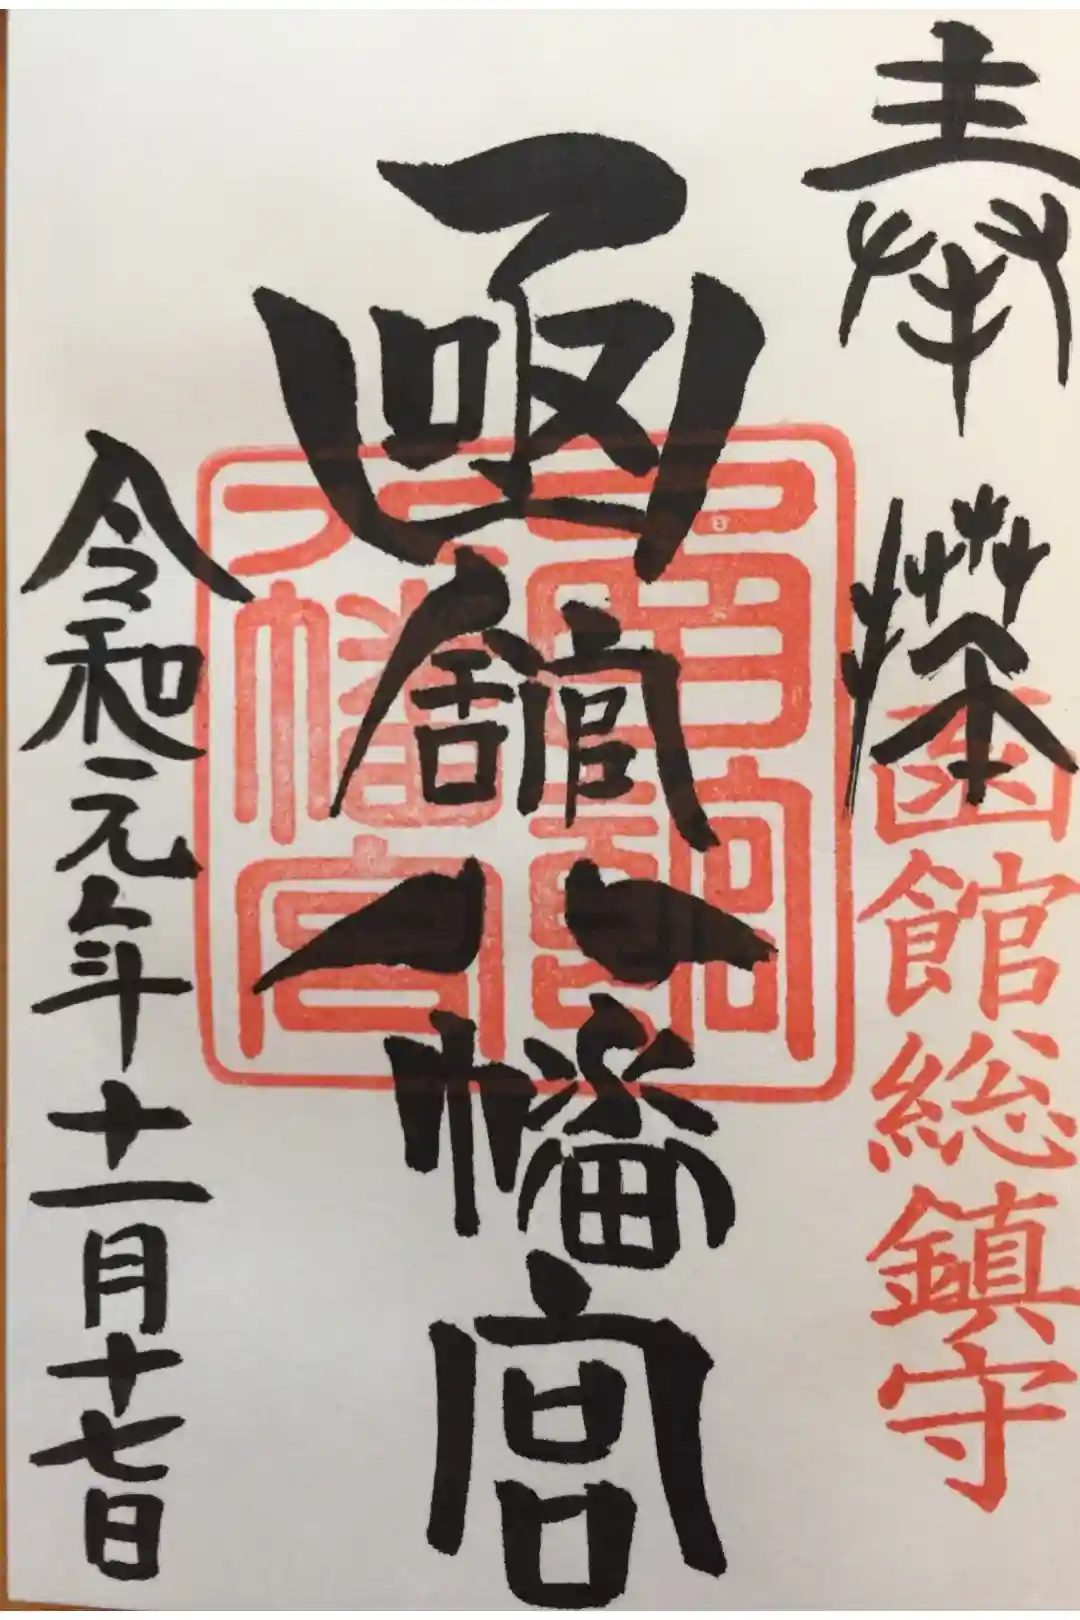 奉拝
函館総鎮守
凾舘八幡宮
八幡宮
令和元年十一月十七日